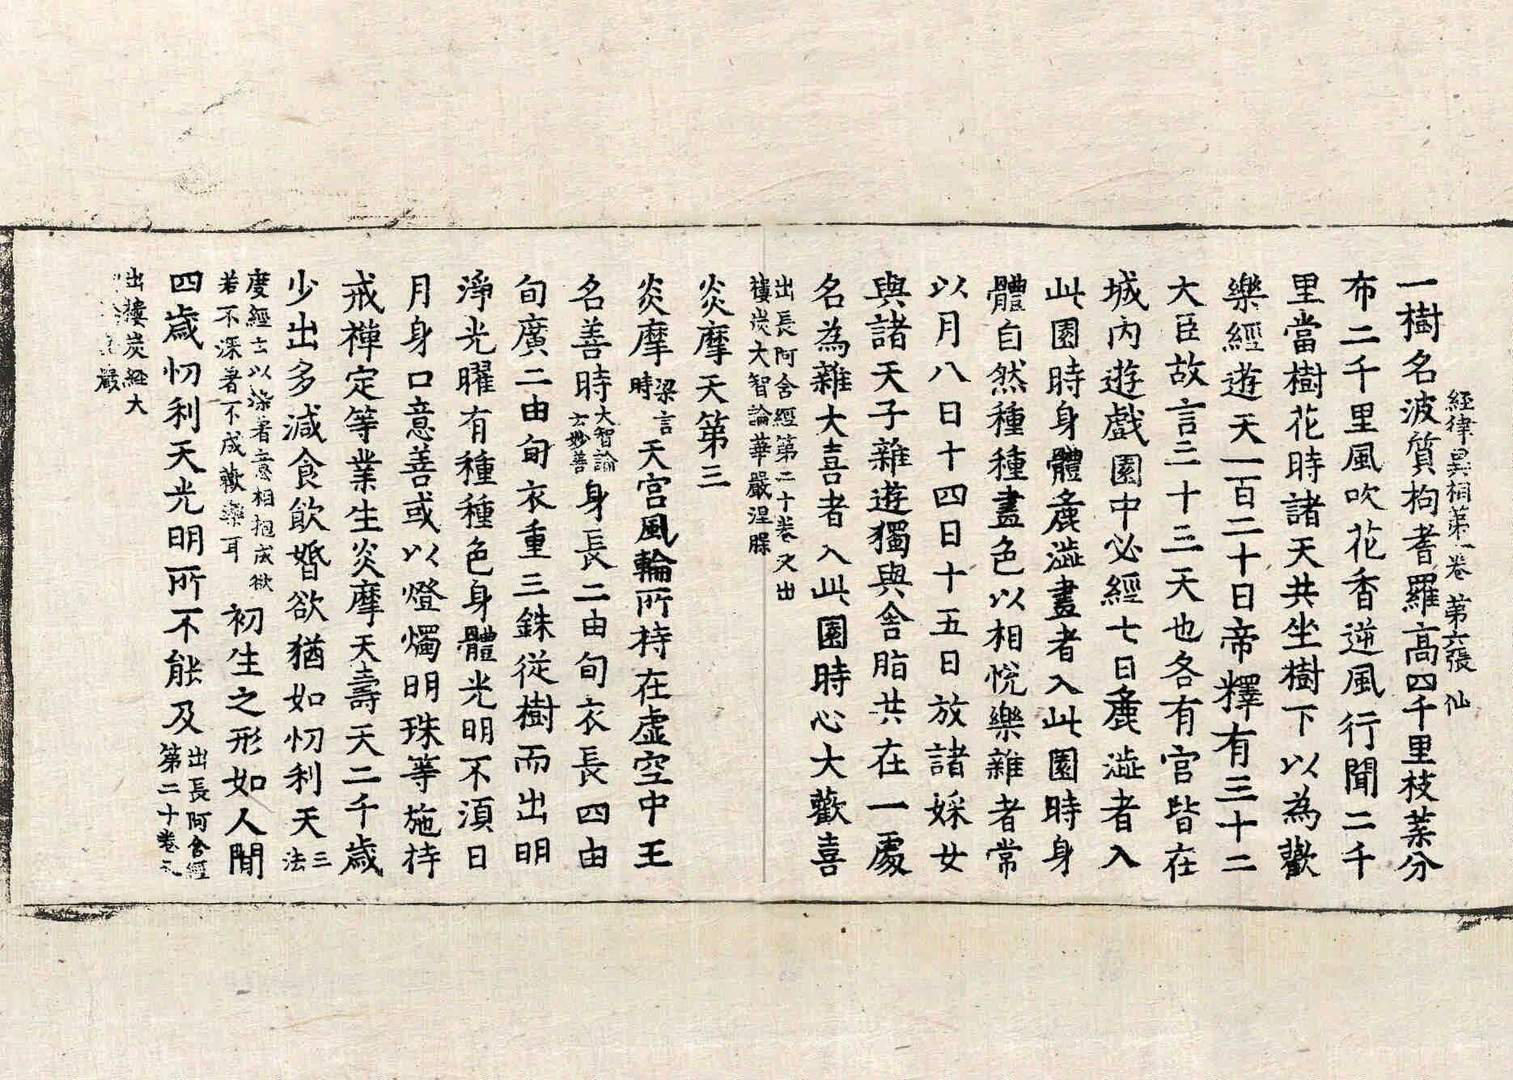 經律異相第一卷 第六張 仙
一樹名波質拘耆羅高四千里枝葉分
布二千里風吹花香逆風行聞二千
里當樹花時諸天共坐樹下以為歡
樂經遊天一百二十日帝釋有三十二
大臣故言三十三天也各有宮皆在
城內遊戲園中必經七日麁澁者入
此園時身體麁澁晝者入此園時身
體自然種種畫色以相悅樂雜者常
以月八日十四日十五日放諸婇女
與諸天子雜遊獨與舍脂共在一處
名為雜大喜者入此園時心大歡喜
出長阿含經第二十卷又出
樓炭大智論華嚴涅槃
炎摩天第三
炎摩梁言時天宮風輪所持在虛空中王
名善時大智論云妙善身長二由旬衣長四由
旬廣二由旬衣重三銖從樹而出明
淨光曜有種種色身體光明不湏日
月身口意善或以燈燭明珠等施持
戒禪定等業生炎摩天壽天二千歲
少出多減食飲婚欲猶如忉利天三法
度經云以染著意相抱成欲
若不深著不成歡樂耳初生之形如人間
四歲忉利天光明所不能及出長阿含經第二十卷又
出樓炭經大
嚴